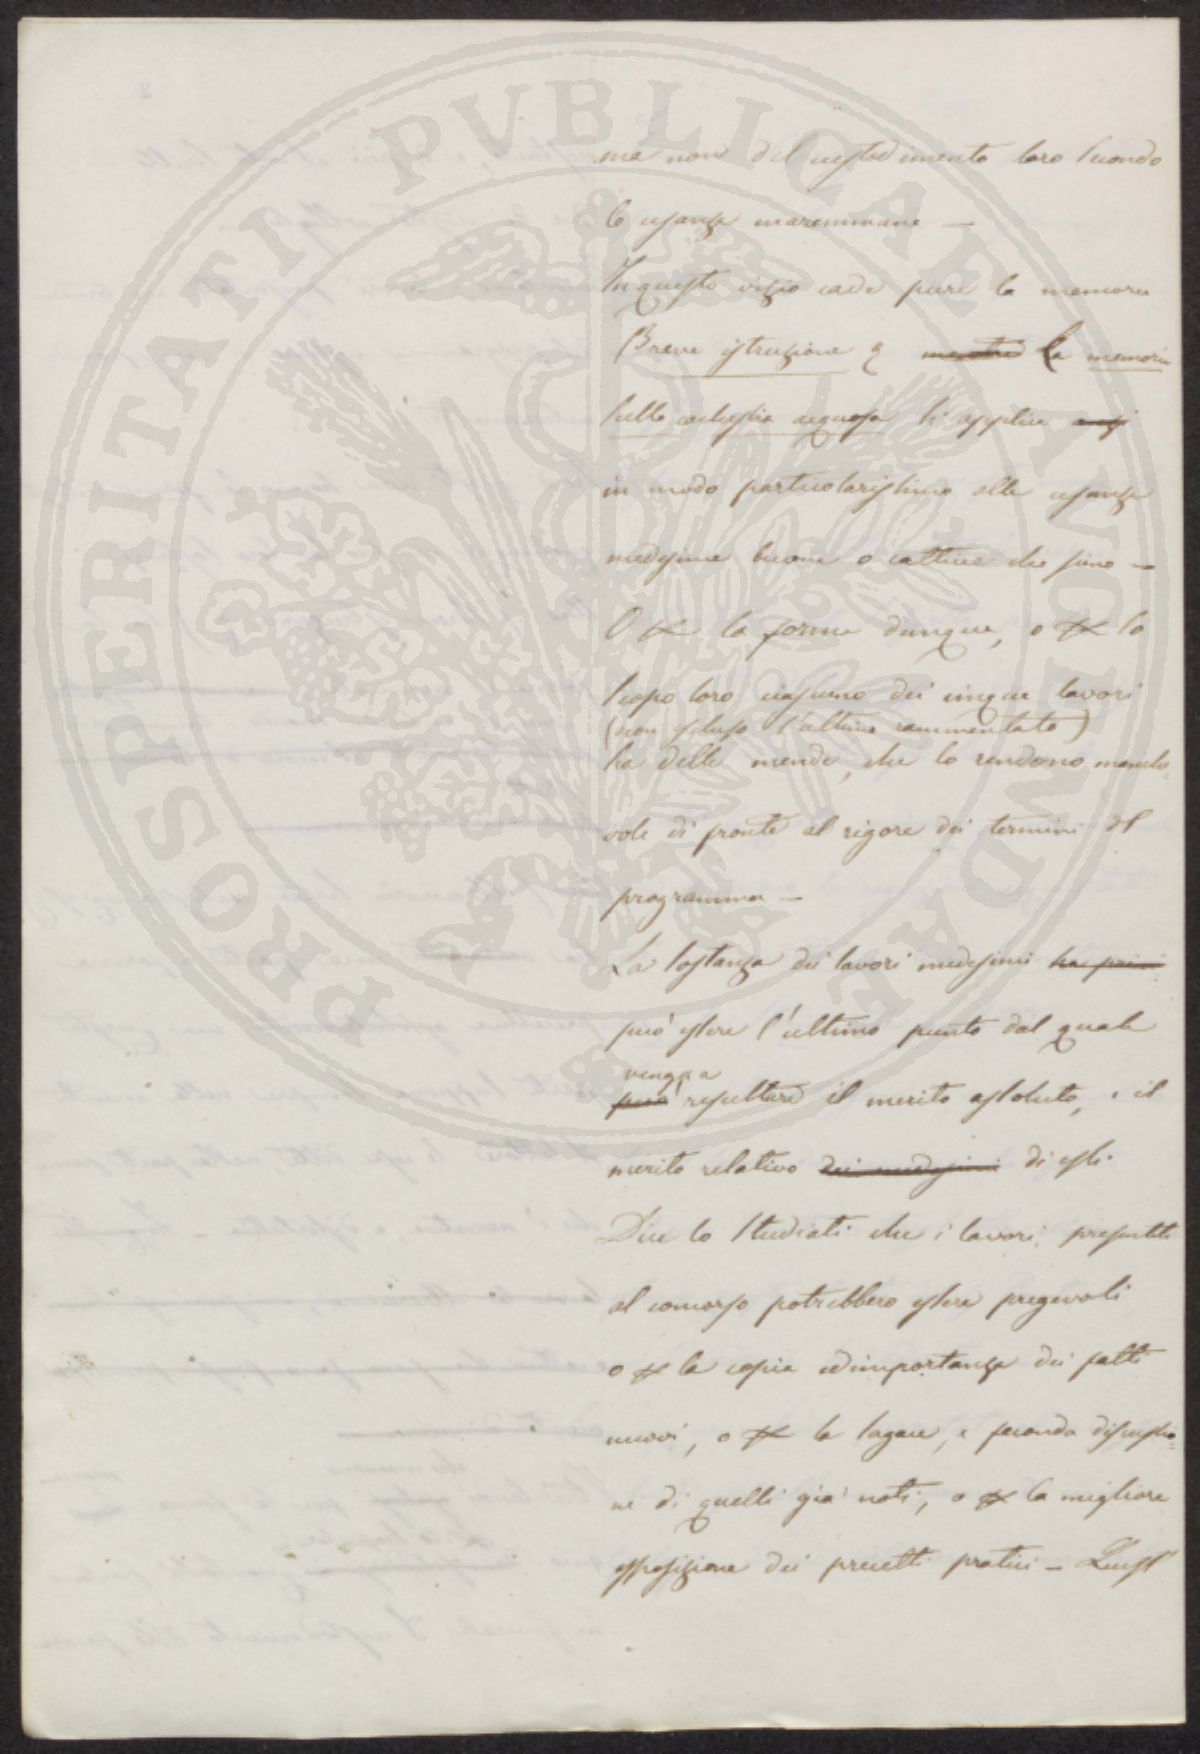 PROSPERITATI PUBLICAE AUGENDAE
ma non del custodimento loro secondo
le usanze maremmane —
In questo vizio cade pure la memoria
Breve istruzione e mentre la memoria
sulla cachessia acquosa si applica anzi
in modo particolarissimo alle usanze
medesime buone o cattive che sieno —
O per la forma dunque, o per lo
scopo loro ciascuno dei cinque lavori
(non escluso l'ultimo rammentato)
ha delle mende, che lo rendono manche-
vole di fronte al rigore dei termini del
programma —
La sostanza dei lavori medesimi ha primi
può essere l'ultimo punto dal quale
venga
può resultare il merito assoluto, e il
merito relativo dei medesimi di essi.
Dice lo Studiati che i lavori presentati
al concorso potrebbero essere pregevoli
o per la copia ed importanza dei fatti
nuovi, o per la sagace, e feconda discussio=
ne di quelli già noti, o per la migliore
esposizione dei precetti pratici —